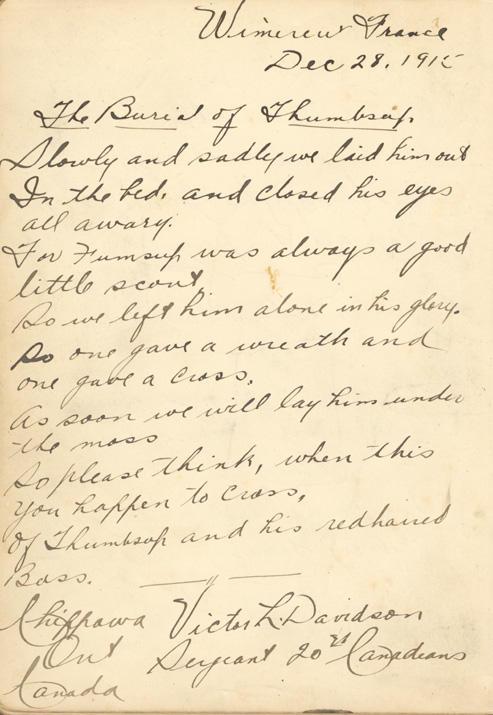 Wimereux France
Dec 28, 1915
The Burial of Thumbsup.
Slowly and sadly we laid him out
In the bed, and closed his eyes
all awary.
For Fumsup was always a good
little scout,
So we left him alone in his glory.
So one gave a wreath and
one gave a cross,
As soon we will lay him under
the moss
So please think, when this
you happen to cross,
Of Thumbsup and his redhaired
Boss.
Chippawa Victor L. Davidson
Ont Sergeant 20th Canadians
Canada